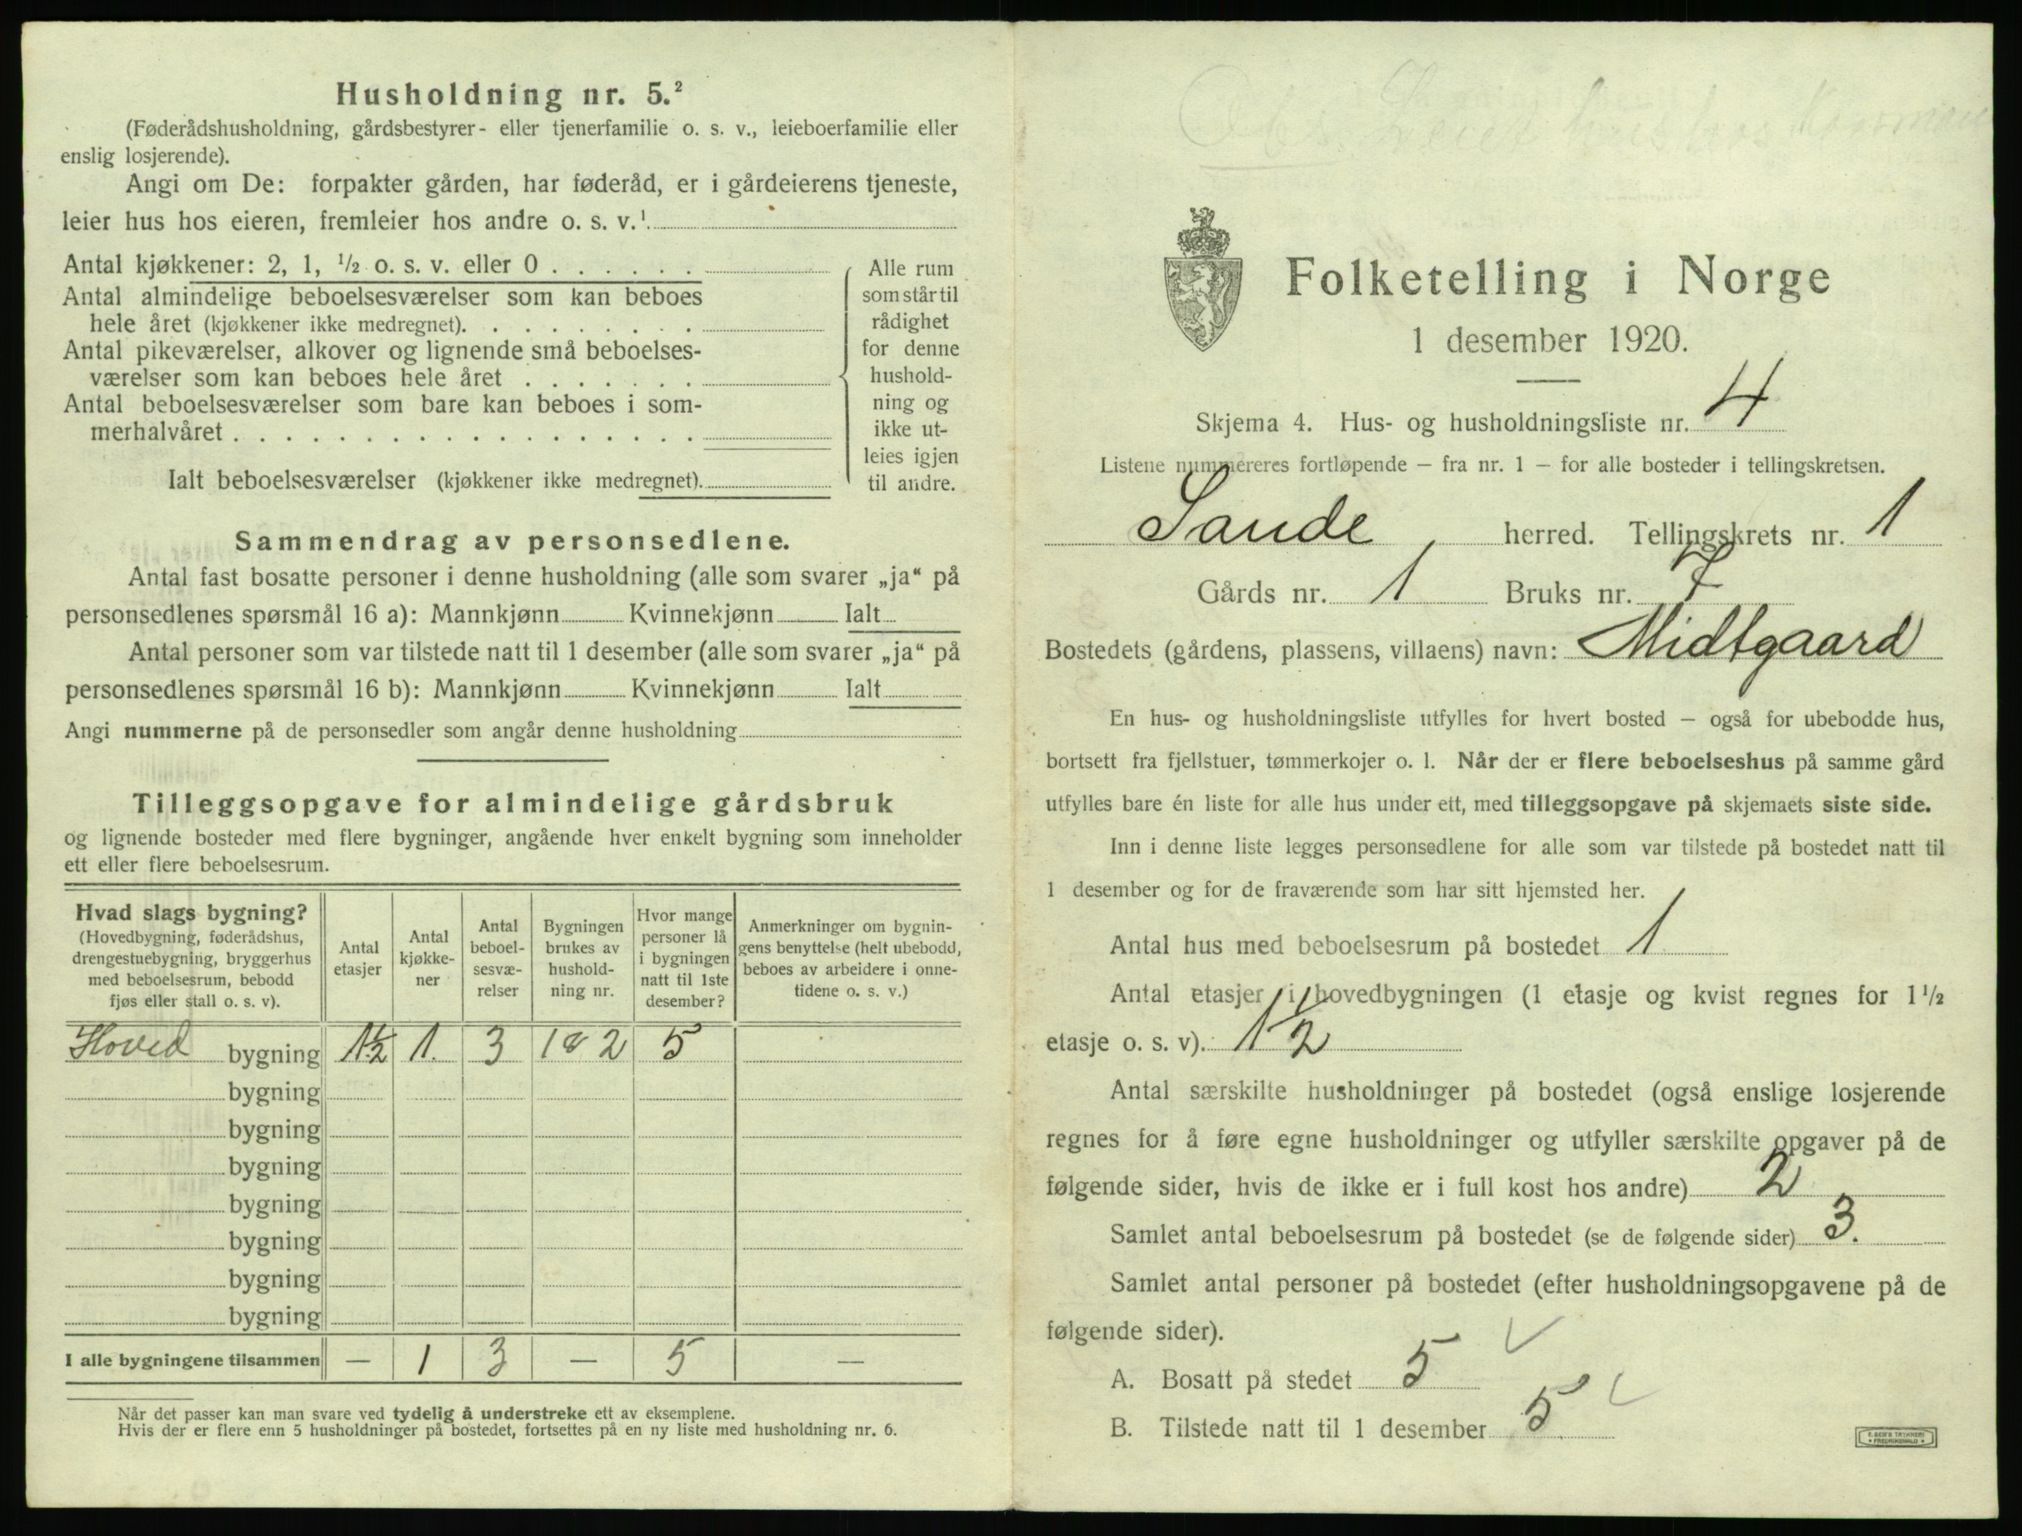 Husholdning nr. 5.²
(Føderådshusholdning, gårdsbestyrer- eller tjenerfamilie o. s. v., leieboerfamilie eller
enslig losjerende).
Angi om De: forpakter gården, har føderåd, er i gårdeierens tjeneste,
leier hus hos eieren, fremleier hos andre o. s. v.¹
Antal kjøkkener: 2, 1, ½ o. s. v. eller 0 . . . . . .
Antal almindelige beboelsesværelser som kan beboes
hele året (kjøkkener ikke medregnet). . . . . . . . .
Antal pikeværelser, alkover og lignende små beboelses-
værelser som kan beboes hele året . . . . . . .
Antal beboelsesværelser som bare kan beboes i som-
merhalvåret . . . . . . . . . . . . . . . . . .
Ialt beboelsesværelser (kjøkkener ikke medregnet).
Alle rum
som står til
rådighet
for denne
hushold-
ning og
ikke ut-
leies igjen
til andre.
Sammendrag av personsedlene.
Antal fast bosatte personer i denne husholdning (alle som svarer „ja“ på
personsedlenes spørsmål 16 a): Mannkjønn Kvinnekjønn Ialt
Antal personer som var tilstede natt til 1 desember (alle som svarer „ja“ på
personsedlenes spørsmål 16 b): Mannkjønn Kvinnekjønn Ialt
Angi nummerne på de personsedler som angår denne husholdning
Tilleggsopgave for almindelige gårdsbruk
og lignende bosteder med flere bygninger, angående hver enkelt bygning som inneholder
ett eller flere beboelsesrum.
Hvad slags bygning?
(Hovedbygning, føderådshus,
drengestuebygning, bryggerhus
med beboelsesrum, bebodd
fjøs eller stall o. s. v).
Antal
etasjer
Antal
kjøkke-
ner
Antal
beboel-
sesvæ-
relser
Bygningen
brukes av
hushold-
ning nr.
Hvor mange
personer lå
i bygningen
natt til 1ste
desember?
Anmerkninger om bygnin-
gens benyttelse (helt ubebodd,
beboes av arbeidere i onne-
tidene o. s. v.)
Hoved bygning 1½ 1. 3 1 & 2 5
bygning
bygning
bygning
bygning
bygning
bygning
bygning
I alle bygningene tilsammen — 1 3 — 5 —
Når det passer kan man svare ved tydelig å understreke ett av eksemplene.
Hvis der er flere enn 5 husholdninger på bostedet, fortsettes på en ny liste med husholdning nr. 6.
Folketelling i Norge
1 desember 1920.
Skjema 4. Hus- og husholdningsliste nr. 4
Listene nummereres fortløpende – fra nr. 1 – for alle bosteder i tellingskretsen.
Sande herred. Tellingskrets nr. 1
Gårds nr. 1 Bruks nr. 7
Bostedets (gårdens, plassens, villaens) navn: Midtgaard
En hus- og husholdningsliste utfylles for hvert bosted – også for ubebodde hus,
bortsett fra fjellstuer, tømmerkojer o. l. Når der er flere beboelseshus på samme gård
utfylles bare én liste for alle hus under ett, med tilleggsopgave på skjemaets siste side.
Inn i denne liste legges personsedlene for alle som var tilstede på bostedet natt til
1 desember og for de fraværende som har sitt hjemsted her.
Antal hus med beboelsesrum på bostedet 1
Antal etasjer i hovedbygningen (1 etasje og kvist regnes for 1½
etasje o. s. v). 1½
Antal særskilte husholdninger på bostedet (også enslige losjerende
regnes for å føre egne husholdninger og utfyller særskilte opgaver på de
følgende sider, hvis de ikke er i full kost hos andre) 2
Samlet antal beboelsesrum på bostedet (se de følgende sider) 3.
Samlet antal personer på bostedet (efter husholdningsopgavene på de
følgende sider).
A. Bosatt på stedet 5
B. Tilstede natt til 1 desember 5